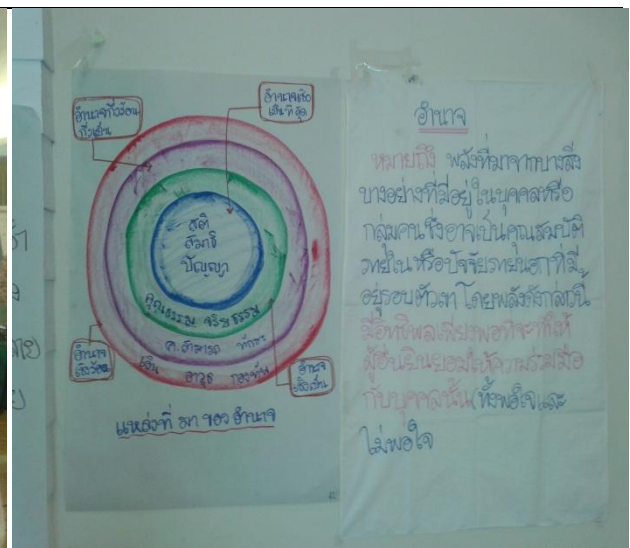 อำนาจกึ่งร้อน
กึ่งเย็น
อำนาจเชิง
เย็นที่สุด
สติ
สมาธิ
ปัญญา
คุณธรรม จริยธรรม
ค.สามารถ ทักษะ
เงิน อาวุธ กองทัพ
อำนาจ
เชิงร้อน
อำนาจ
เชิงเย็น
แหล่งที่มาของอำนาจ
อำนาจ
หมายถึง พลังที่มาจากบางสิ่ง
บางอย่างที่มีอยู่ในบุคคลหรือ
กลุ่มคนซึ่งอาจเป็นคุณสมบัติ
ภายใน หรือปัจจัยภายนอกที่มี
อยู่รอบตัวเขา โดยพลังดังกล่าวนี้
มีอิทธิพลเพียงพอที่จะทำให้
ผู้อื่นยินยอมให้ความร่วมมือ
กับบุคคลนั้น(ทั้งพอใจและ
ไม่พอใจ